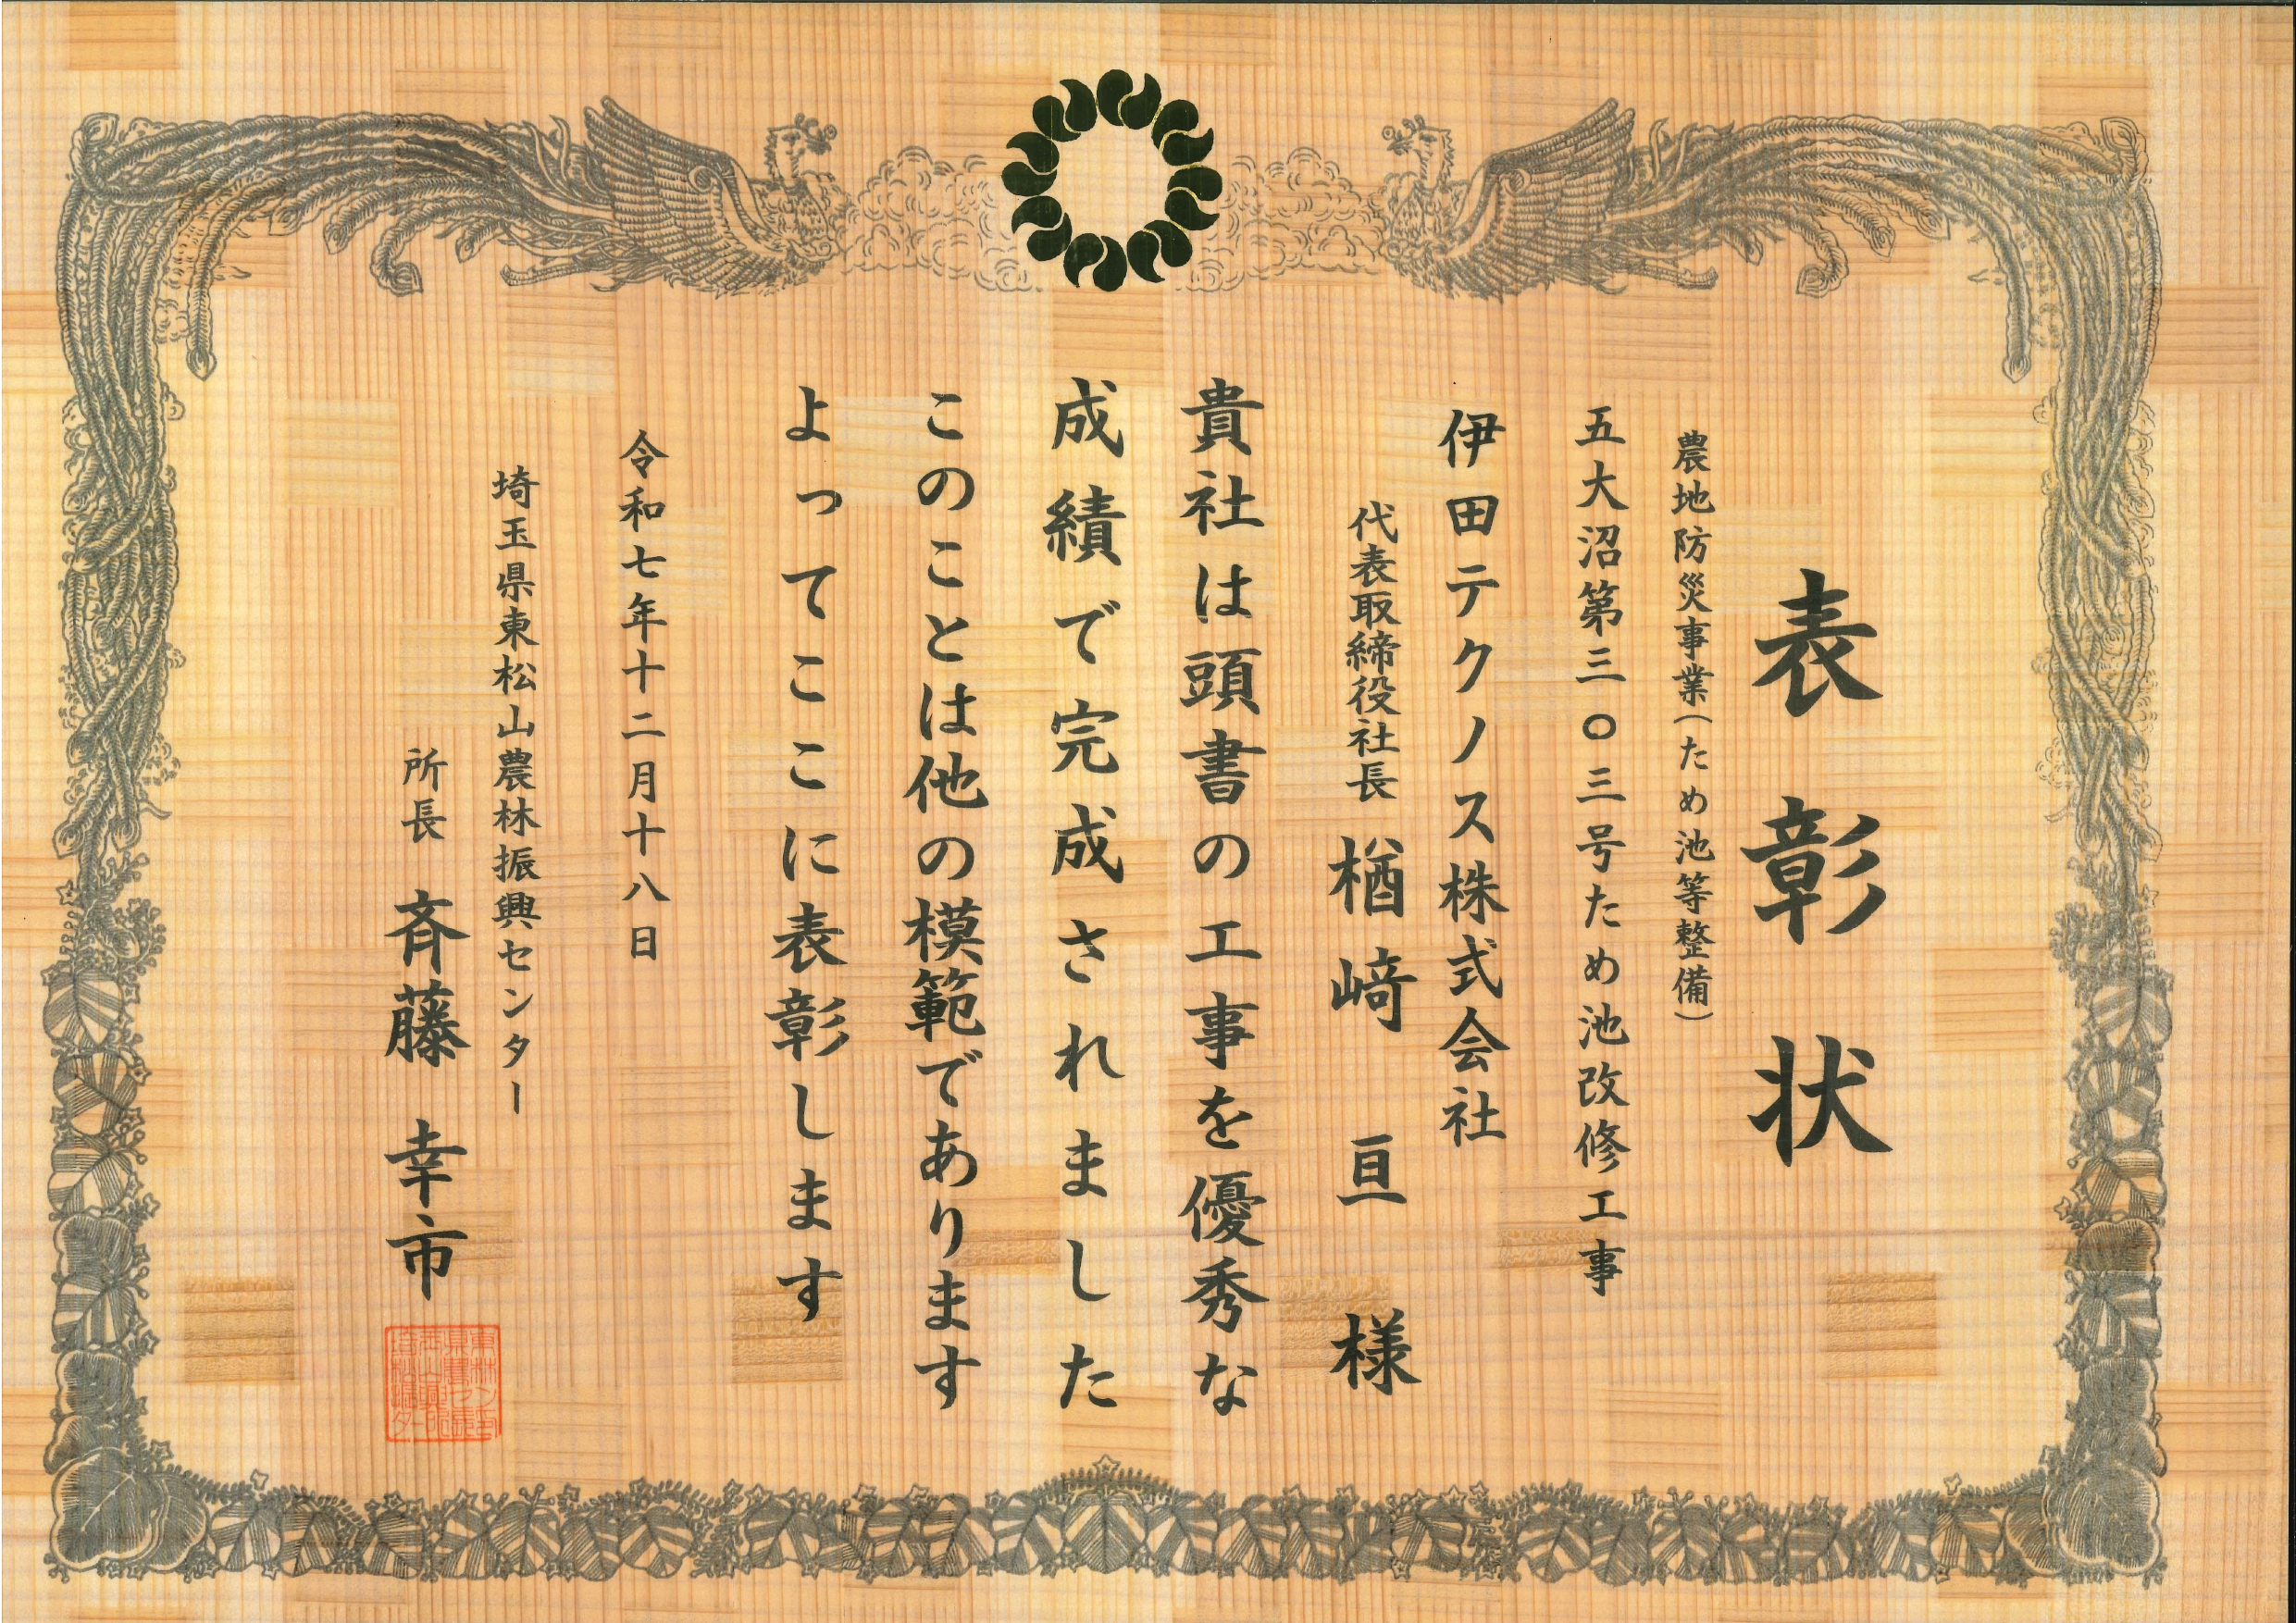 表彰状
農地防災事業(ため池等整備)
五大沼第三〇三号ため池改修工事
伊田テクノス株式会社
代表取締役社長 楢﨑 亘 様
貴社は頭書の工事を優秀な
成績で完成されました
このことは他の模範であります
よってここに表彰します
令和七年十二月十八日
埼玉県東松山農林振興センター
所長 斉藤 幸市